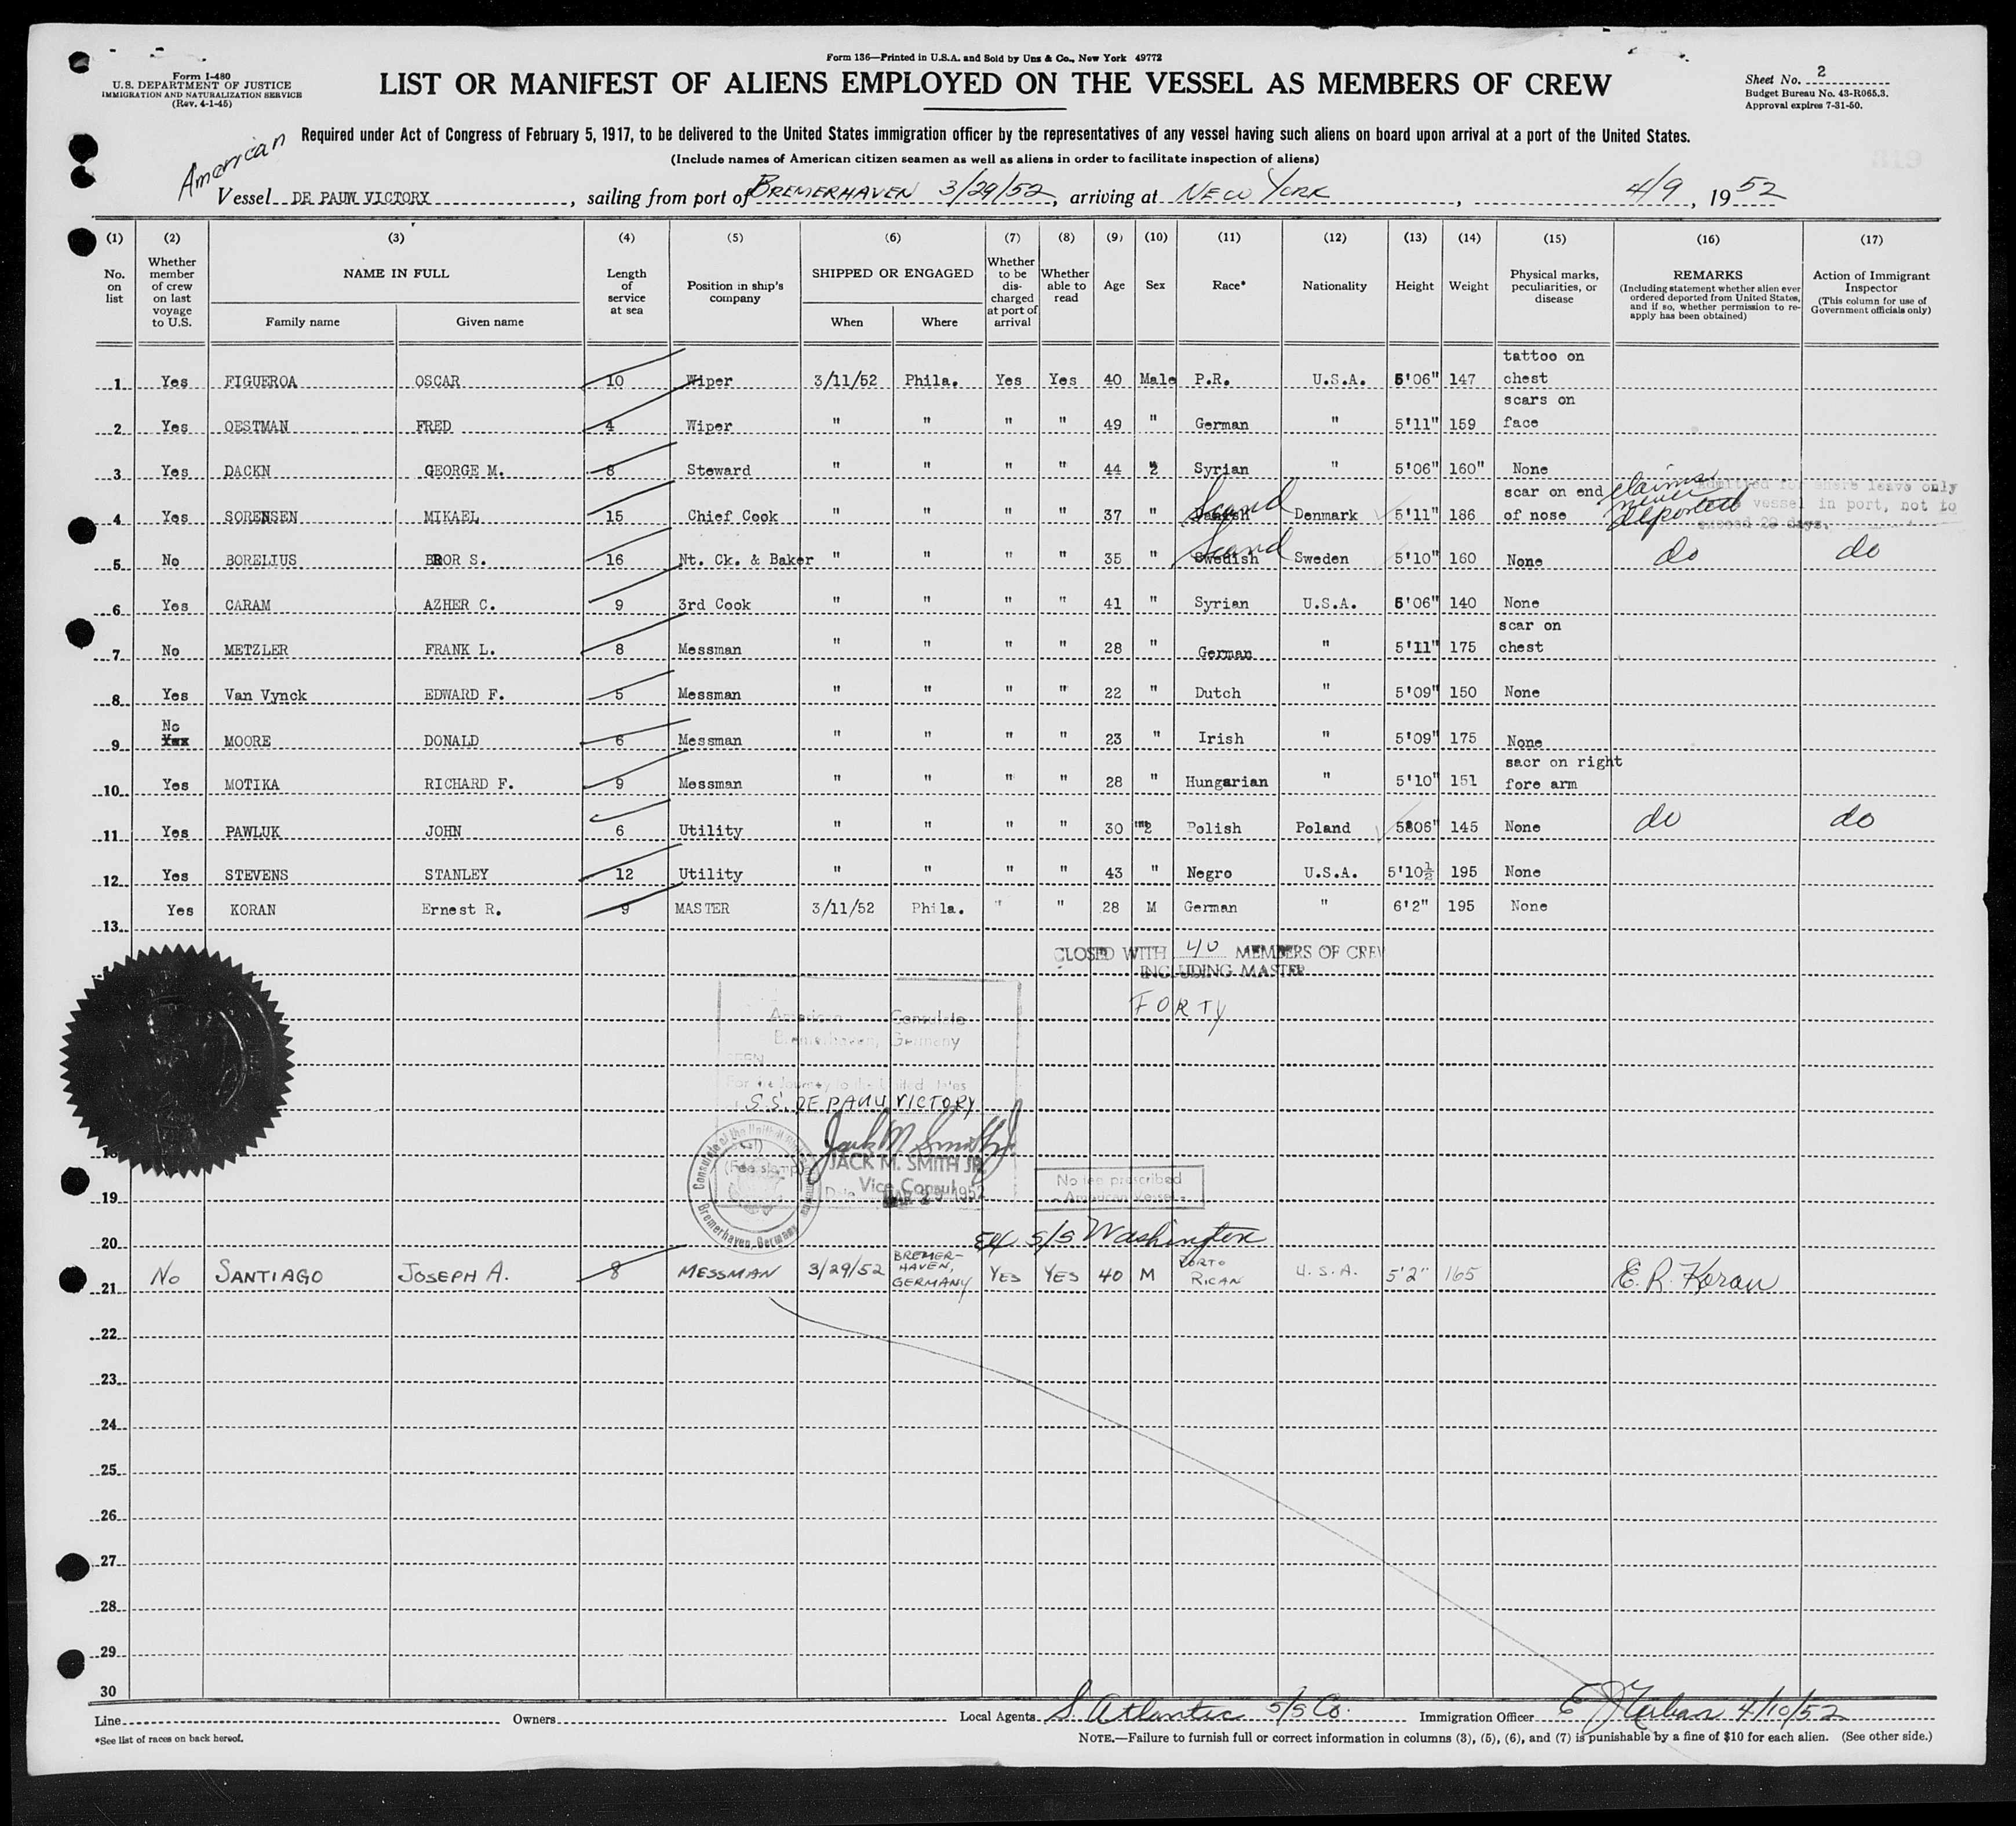 Form 136—Printed in U.S.A. and Sold by Unz & Co., New York 49772
Form I-480
U.S. DEPARTMENT OF JUSTICE
IMMIGRATION AND NATURALIZATION SERVICE
(Rev. 4-1-45)
LIST OR MANIFEST OF ALIENS EMPLOYED ON THE VESSEL AS MEMBERS OF CREW
Sheet No. 2
Budget Bureau No. 43-R065.3.
Approval expires 7-31-50.
Required under Act of Congress of February 5, 1917, to be delivered to the United States immigration officer by the representatives of any vessel having such aliens on board upon arrival at a port of the United States.
(Include names of American citizen seamen as well as aliens in order to facilitate inspection of aliens)
American
Vessel DE PAUW VICTORY, sailing from port of BREMERHAVEN 3/29/52, arriving at NEW YORK, 4/9, 1952
(1) (2) (3) (4) (5) (6) (7) (8) (9) (10) (11) (12) (13) (14) (15) (16) (17)
No. on list
Whether member of crew on last voyage to U.S.
NAME IN FULL
Family name
Given name
Length of service at sea
Position in ship's company
SHIPPED OR ENGAGED
When
Where
Whether to be discharged at port of arrival
Whether able to read
Age
Sex
Race*
Nationality
Height
Weight
Physical marks, peculiarities, or disease
REMARKS
(Including statement whether alien ever ordered deported from United States, and if so, whether permission to re-apply has been obtained)
Action of Immigrant Inspector
(This column for use of Government officials only)
1 Yes FIGUEROA OSCAR 10 Wiper 3/11/52 Phila. Yes Yes 40 Male P.R. U.S.A. 5'06" 147 tattoo on chest
2 Yes OESTMAN FRED 4 Wiper " " " " 49 " German " 5'11" 159 scars on face
3 Yes DACKN GEORGE M. 8 Steward " " " " 44 " Syrian " 5'06" 160" None
4 Yes SORENSEN MIKAEL 15 Chief Cook " " " " 37 " Danish Scand Denmark 5'11" 186 scar on end of nose claims never deported Admitted for shore leave only vessel in port, not to exceed 29 days.
5 No BORELIUS BROR S. 16 Nt. Ck. & Baker " " " " 35 " Swedish Scand Sweden 5'10" 160 None do do
6 Yes CARAM AZHER C. 9 3rd Cook " " " " 41 " Syrian U.S.A. 5'06" 140 None
7 No METZLER FRANK L. 8 Messman " " " " 28 " German " 5'11" 175 scar on chest
8 Yes Van Vynck EDWARD F. 5 Messman " " " " 22 " Dutch " 5'09" 150 None
9 No MOORE DONALD 6 Messman " " " " 23 " Irish " 5'09" 175 None
10 Yes MOTIKA RICHARD F. 9 Messman " " " " 28 " Hungarian " 5'10" 151 sacr on right fore arm
11 Yes PAWLUK JOHN 6 Utility " " " " 30 " Polish Poland 5806" 145 None do do
12 Yes STEVENS STANLEY 12 Utility " " " " 43 " Negro U.S.A. 5'10½ 195 None
13 Yes KORAN Ernest R. 9 MASTER 3/11/52 Phila. " " 28 M German " 6'2" 195 None
CLOSED WITH 40 MEMBERS OF CREW
INCLUDING MASTER
FORTY
American Consulate
Bremerhaven, Germany
SEEN
For the Journey to the United States
S.S. DE PAUW VICTORY
Jack M Smith Jr
JACK M. SMITH JR.
Vice Consul
Date MAR 29 1952
(Fee stamp)
Consulate of the United States
Bremerhaven, Germany
No fee prescribed
American Vessel
18
19
20
Ex S/S Washington
21 No SANTIAGO JOSEPH A. 8 MESSMAN 3/29/52 BREMER-HAVEN, GERMANY YES YES 40 M PORTO RICAN U.S.A. 5'2" 165 E. R. Koran
22
23
24
25
26
27
28
29
30
Line Owners Local Agents S. Atlantic S/S Co. Immigration Officer 4/10/52
*See list of races on back hereof.
NOTE.—Failure to furnish full or correct information in columns (3), (5), (6), and (7) is punishable by a fine of $10 for each alien. (See other side.)